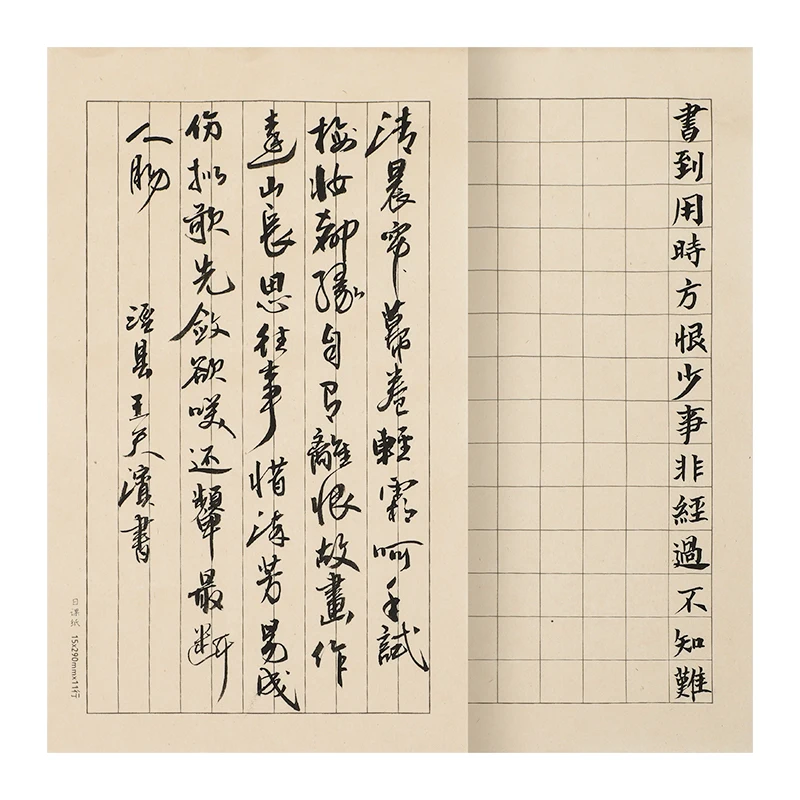 書到用時方恨少事非經過不知難
清晨帘幕卷輕霜呵手試
梅妆都緣自有離恨故畫作
遠山長思往事惜流芳易成
伤拟歌先敛欲咲还顰最断
人肠
泾县王天濱書
日课纸 15x290mmx11行